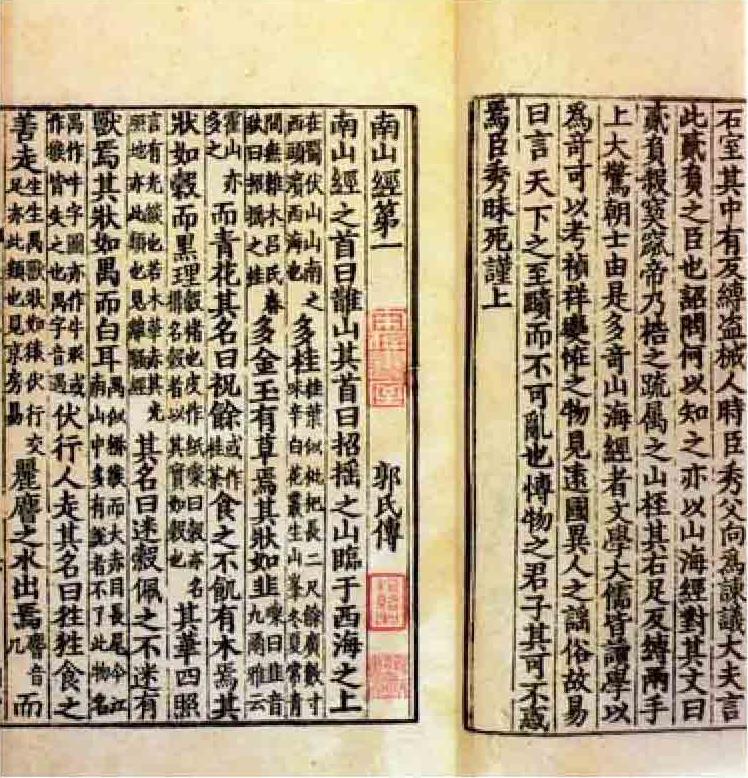 石室其中有反縛盗械人時臣秀父向爲諫議大夫言
此貳負之臣也詔問何以知之亦以山海經對其文曰
貳負殺窫窳帝乃梏之疏屬之山桎其右足反縛兩手
上大驚朝士由是多奇山海經者文學大儒皆讀學以
爲奇可以考禎祥變怪之物見遠國異人之謡俗故易
曰言天下之至賾而不可亂也博物之君子其可不惑
焉臣秀昧死謹上
南山經第一 郭氏傳
南山經之首曰䧿山其首曰招摇之山臨于西海之上
在蜀伏山山南之西頭濱西海也多桂桂葉似枇杷長二尺餘廣數寸味辛白花叢生山峯冬夏常青
間無雜木吕氏春秋曰招摇之桂多金玉有草焉其狀如韭璨曰韭音九爾雅云
霍山亦多之而青花其名曰祝餘或作桂荼食之不飢有木焉其
狀如穀而黒理穀楮也皮作紙璨曰穀亦名構名穀者以其實如穀也其華四照
言有光燄也若木華赤其光照地亦此類也見離騷經其名曰迷穀佩之不迷有
獸焉其狀如禺而白耳禺似獮猴而大赤目長尾今江南山中多有說者不了此物名
禺作牛字圖亦作牛形或作猴皆失之也禺字音遇伏行人走其名曰狌狌食之
善走生生禺獸狀如猿伏行交足亦此類也見京房易麗𪊨之水出焉𪊨音几而